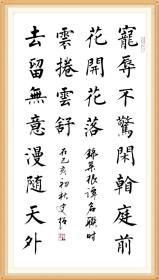 寵辱不驚閑看庭前
花開花落
去留無意漫隨天外
雲捲雲舒
錄菜根譚名聯時
在己亥初秋